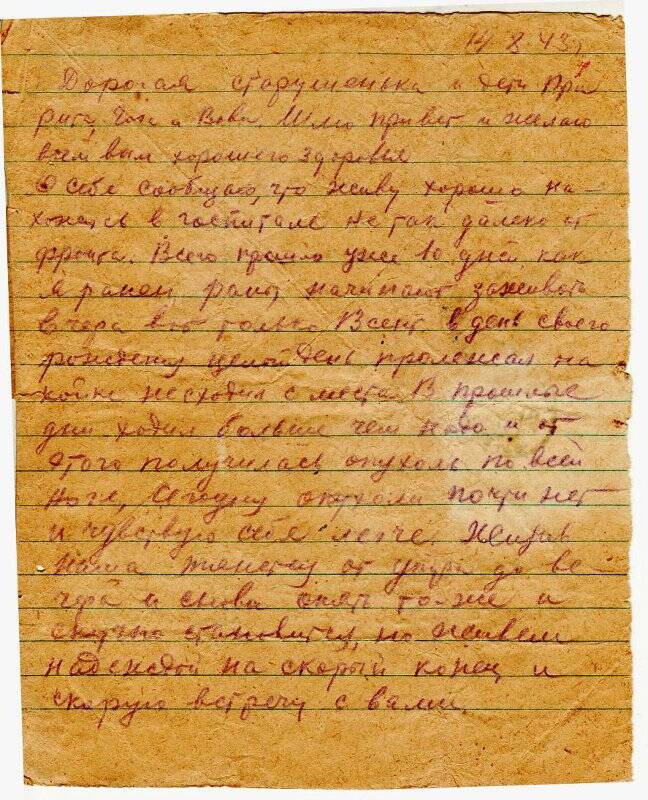 14 8 43 г.
Дорогая старушенька и дети
Рита, и Вова. Шлю привет и желаю
всем вам хорошего здоровья
О себе сообщаю, что живу хорошо на-
хожусь в госпитале не так далеко от
фронта. Всего прошло уже 10 дней как
я ранен, раны начинают заживать
вчера вот только в день своего
рождения целой день пролежал на
койке не сходил с места В прошлые
дни ходил больше чем надо и от
этого получилась опухоль по всей
ноге, Сегодня опухоли почти нет
и чувствую себя легче. Жизнь
наша тянется от утра до ве-
чера и снова опять то-же и
скучно становится, но живем
надеждой на скорый конец и
скорую встречу с вами.